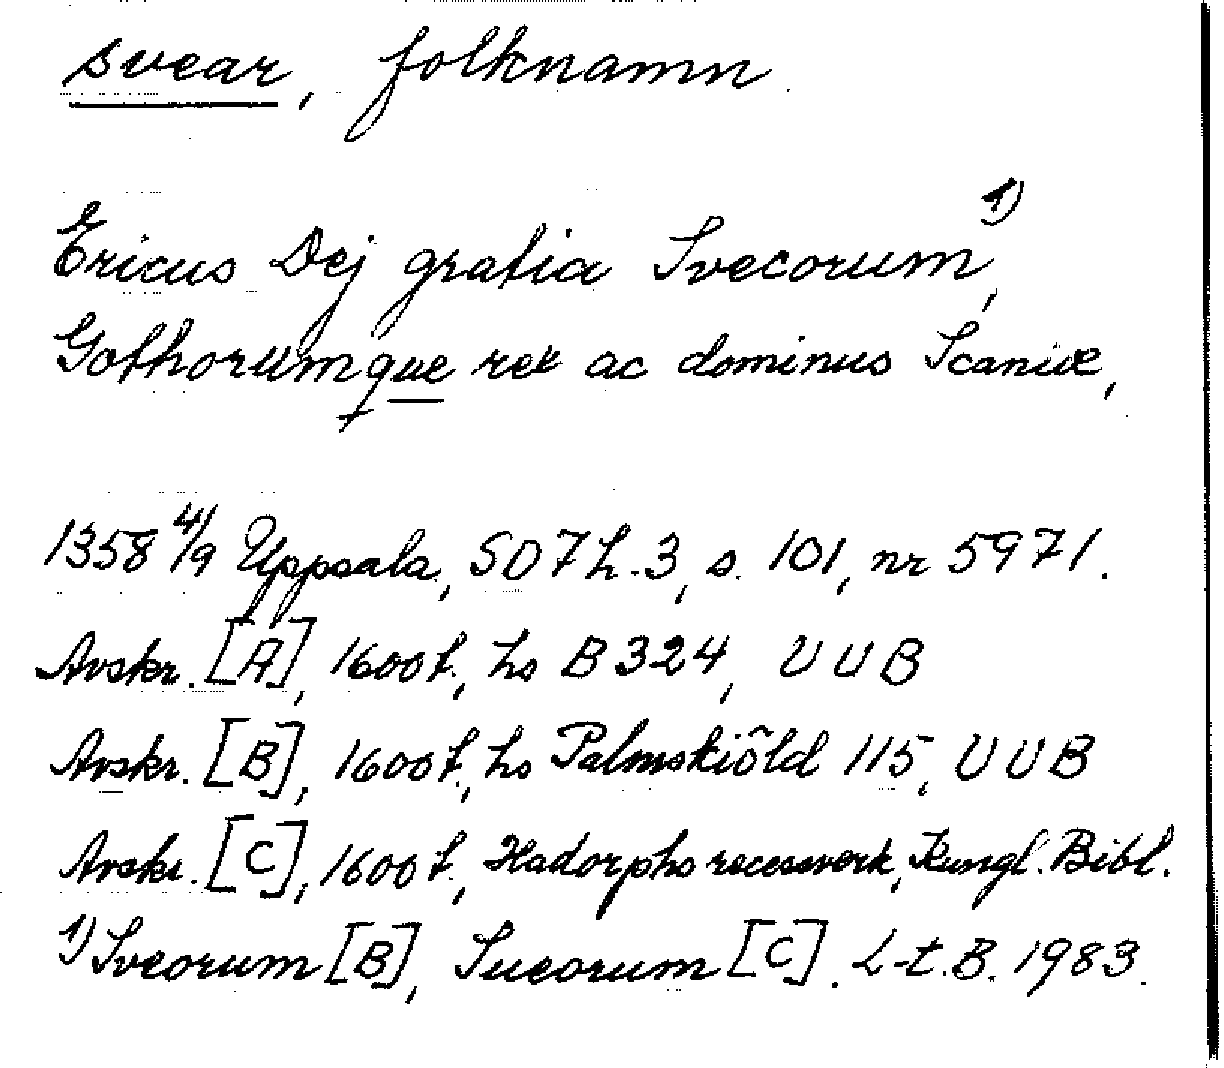 svear, folknamn
Ericus Dej gratia Svecorum,¹⁾
Gothorumque rex ac dominus Scaniæ,
1358 4/9 Uppsala, SD 7 h. 3, s. 101, nr 5971.
Avskr. [A], 1600 t., hs B 324, UUB
Avskr. [B], 1600 t., hs Palmskiöld 115, UUB
Avskr. [C], 1600 t., Hadorphs recesswerk, Kungl. Bibl.
¹⁾ Sveorum [B], Sueorum [C]. L-t. B. 1983.